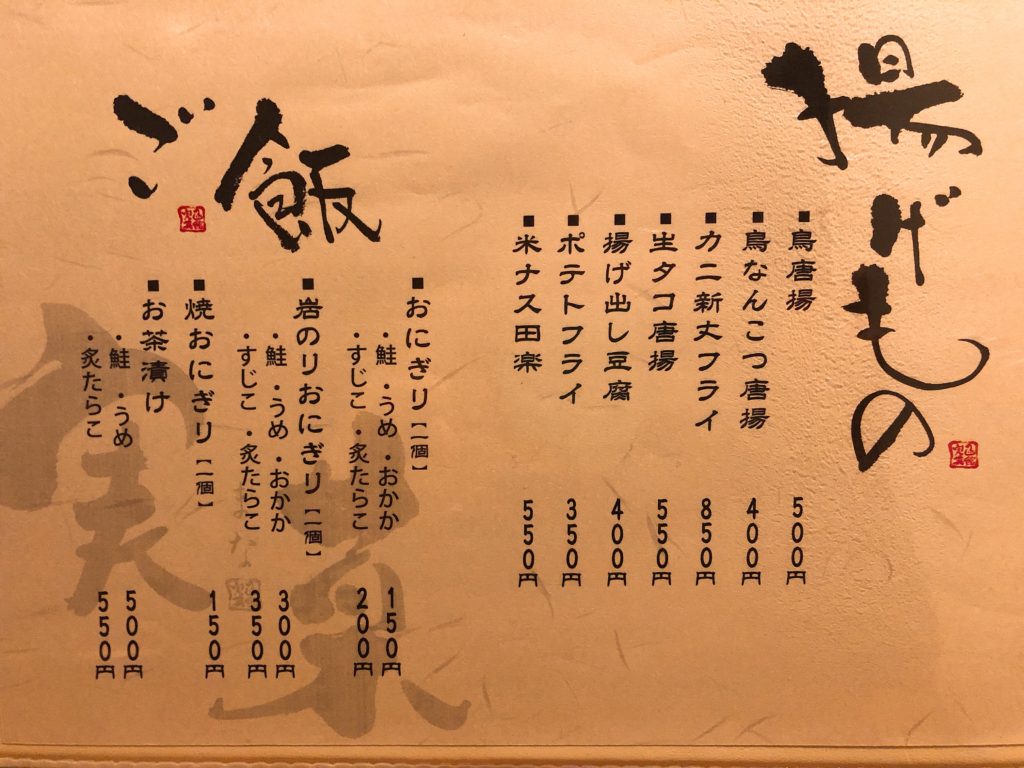 揚げもの
■鳥唐揚 500円
■鳥なんこつ唐揚 400円
■カニ新丈フライ 850円
■生タコ唐揚 550円
■揚げ出し豆腐 400円
■ポテトフライ 350円
■米ナス田楽 550円
ご飯
■おにぎり【一個】
・鮭・うめ・おかか 150円
・すじこ・炙たらこ 200円
■岩のりおにぎり【一個】
・鮭・うめ・おかか 300円
・すじこ・炙たらこ 350円
■焼おにぎり【一個】 150円
■お茶漬け
・鮭・うめ 500円
・炙たらこ 550円